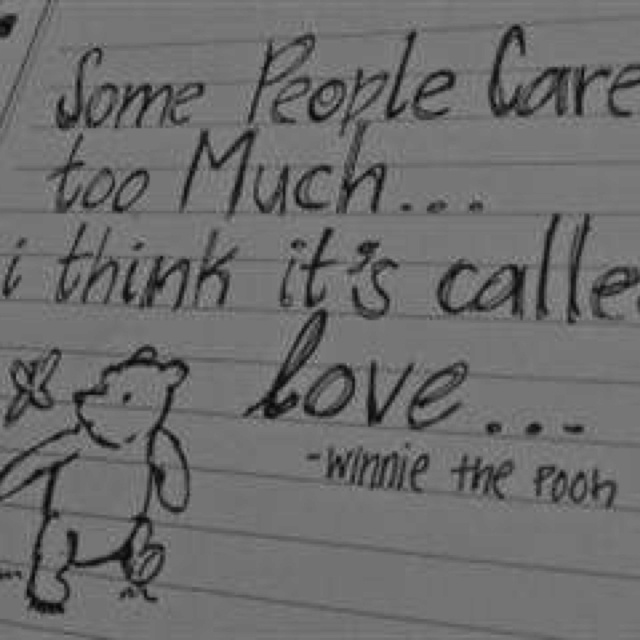 Some People Care
too Much...
i think it's calle
love...
-winnie the Pooh